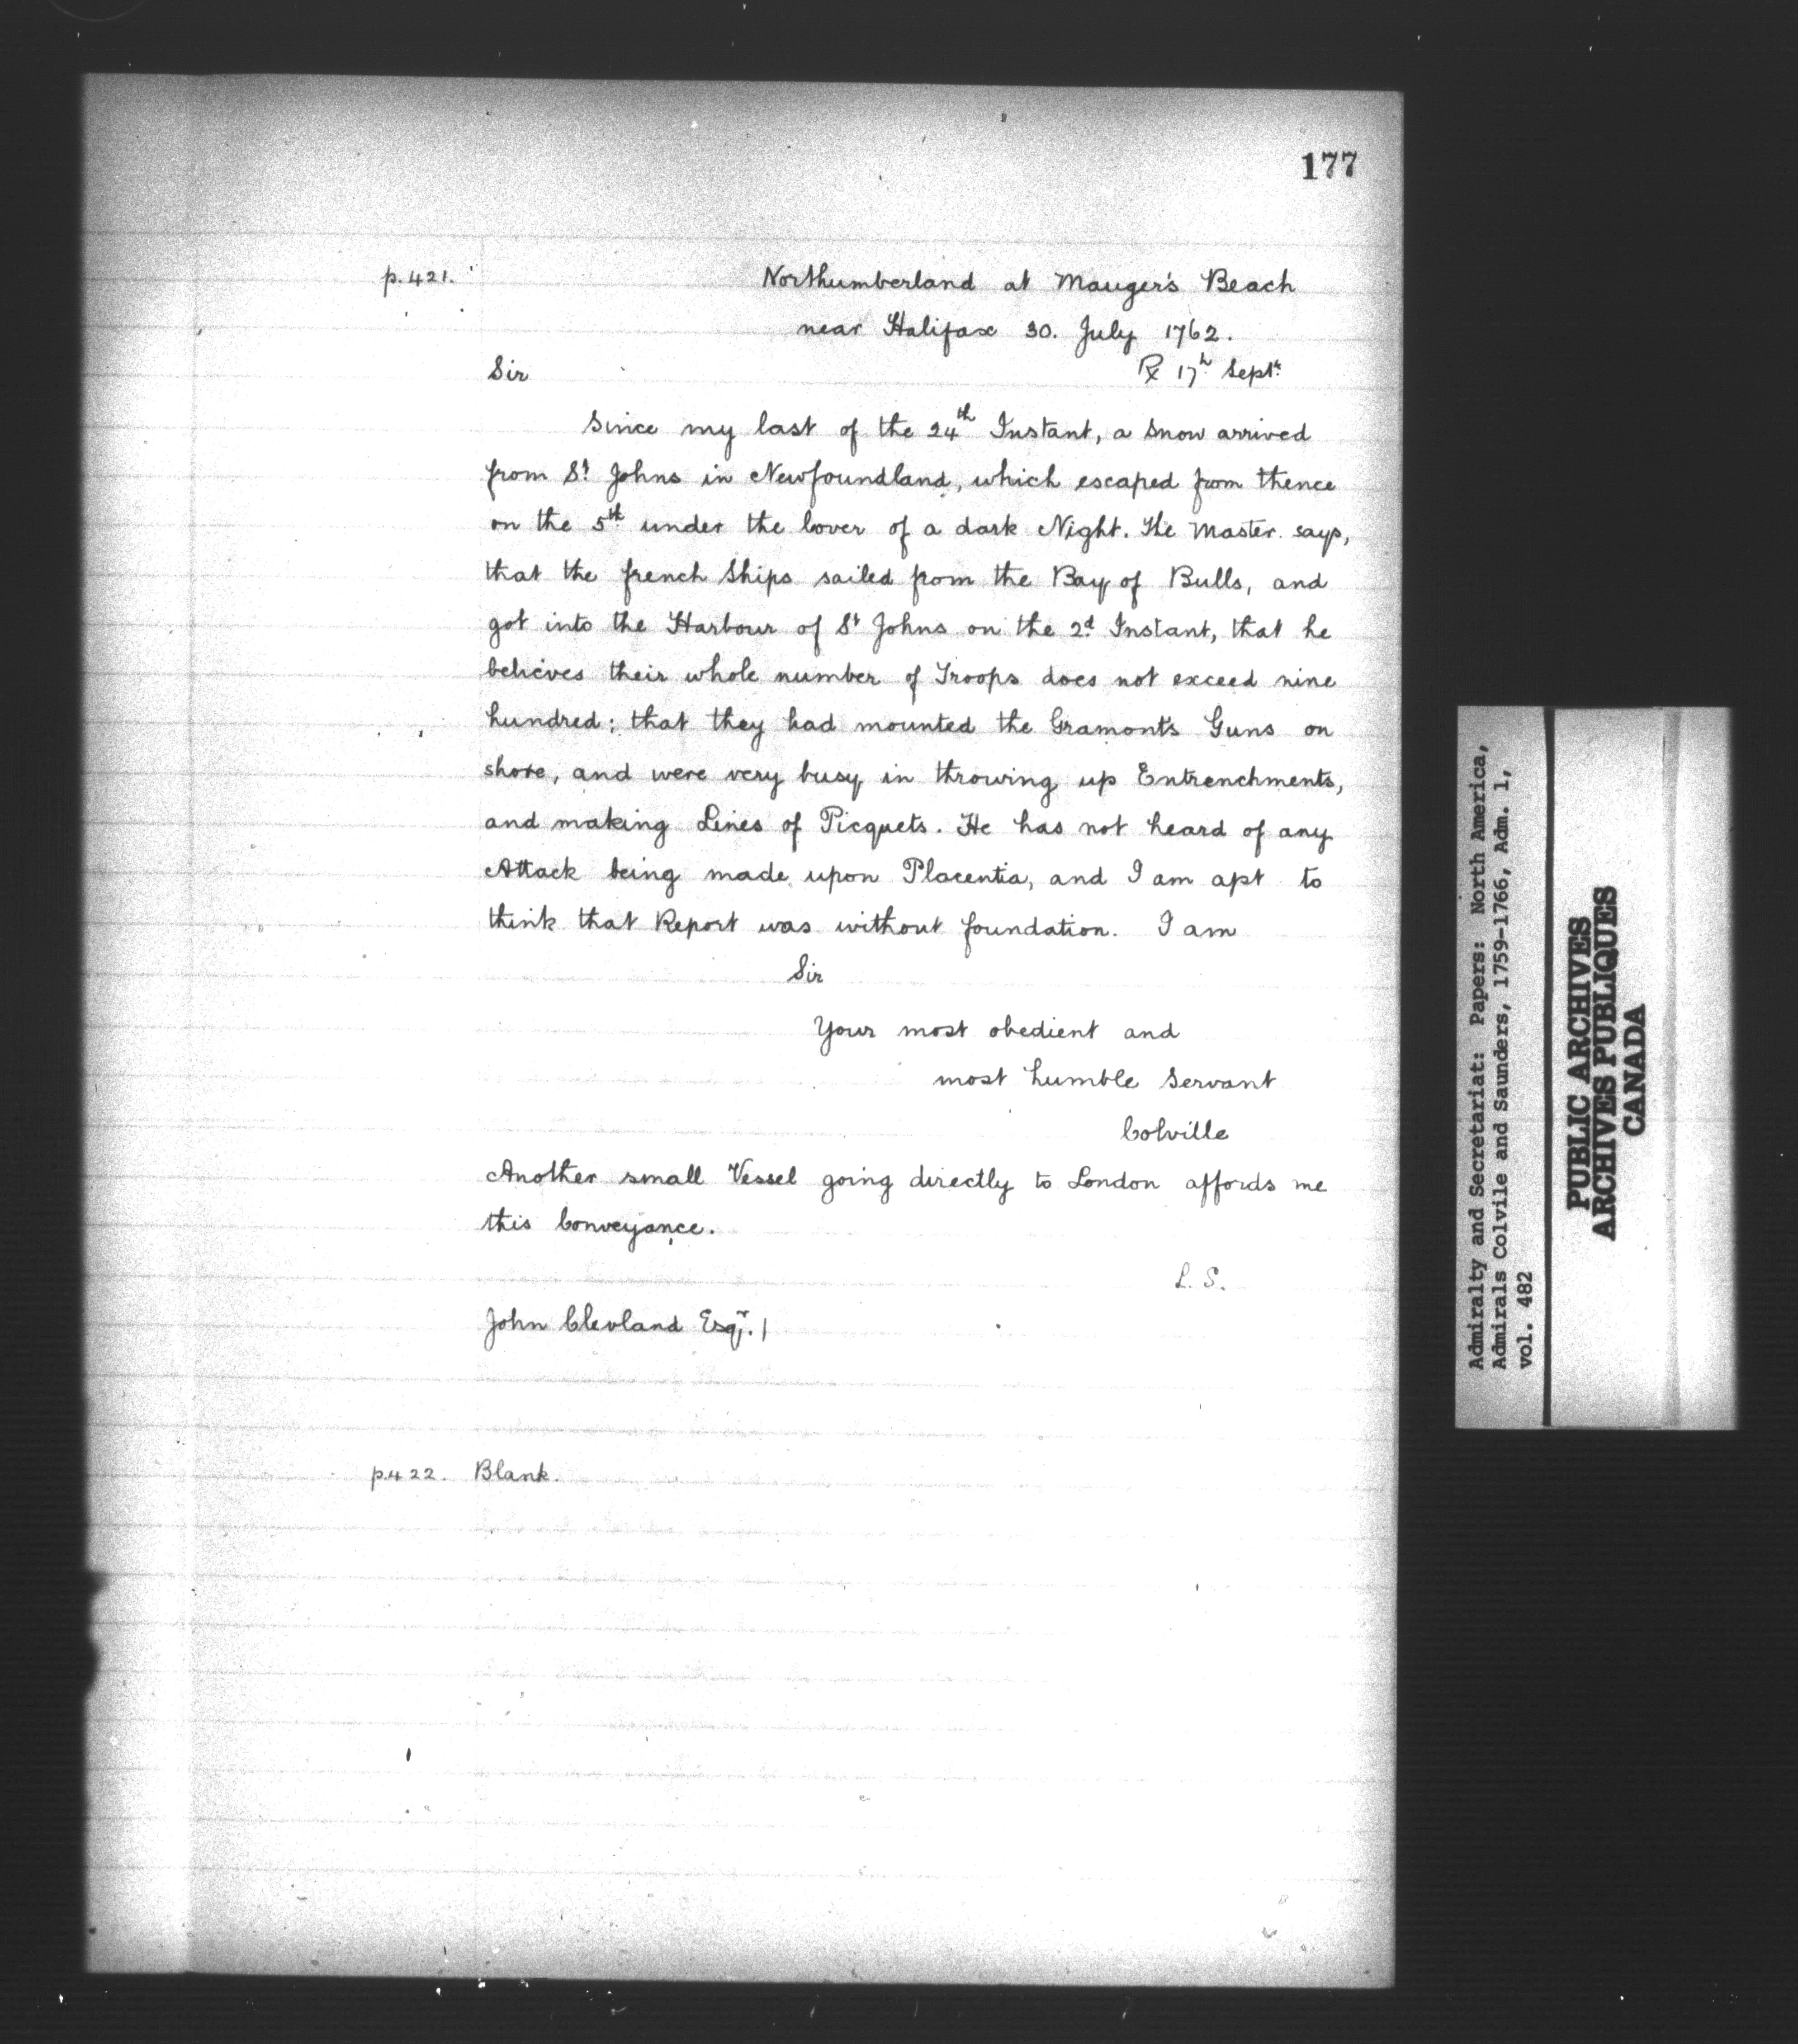 177
p.421.
Northumberland at Mauger's Beach
near Halifax 30. July 1762.
Sir
Rx 17th Septr.
Since my last of the 24th Instant, a Snow arrived
from St Johns in Newfoundland, which escaped from thence
on the 5th under the Cover of a dark Night. The Master says,
that the french Ships sailed from the Bay of Bulls, and
got into the Harbour of St Johns on the 2d Instant, that he
believes their whole number of Troops does not exceed nine
hundred; that they had mounted the Gramont's Guns on
shore, and were very busy in throwing up Entrenchments,
and making Lines of Picquets. He has not heard of any
Attack being made upon Placentia, and I am apt to
think that Report was without foundation. I am
Sir
Your most obedient and
most humble Servant
Colville
Another small Vessel going directly to London affords me
this Conveyance.
L. S.
John Clevland Esqr. /
p.422. Blank.
Admiralty and Secretariat: Papers: North America,
Admirals Colvile and Saunders, 1759-1766, Adm. 1,
vol. 482
PUBLIC ARCHIVES
ARCHIVES PUBLIQUES
CANADA